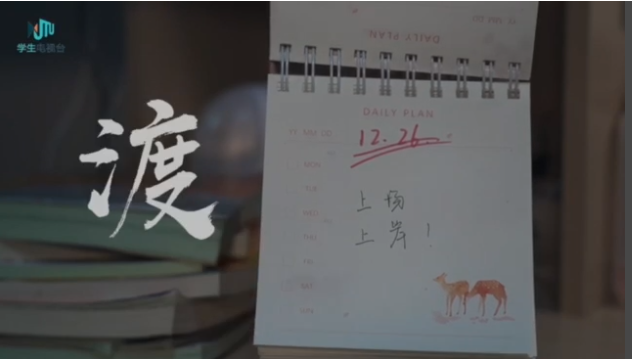 学生电视台
DAILY PLAN
渡
DAILY PLAN
YY MM DD
12.26
MON
TUE
WED
THU
FRI
SAT
SUN
上场
上岸!